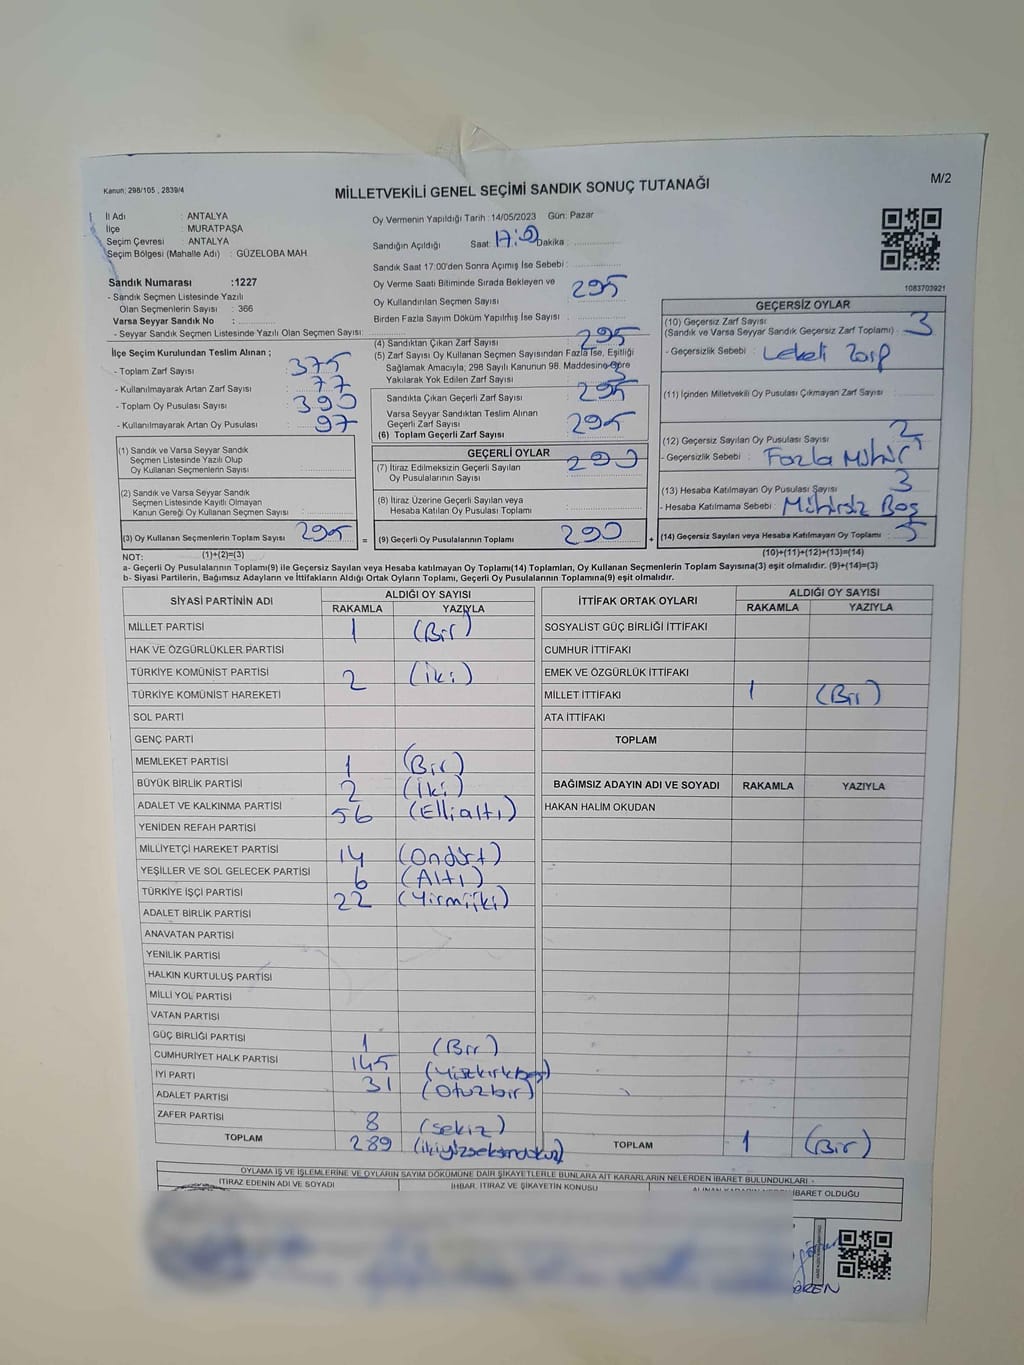 Kanun: 298/105 , 2839/4
MİLLETVEKİLİ GENEL SEÇİMİ SANDIK SONUÇ TUTANAĞI
M/2
İl Adı : ANTALYA
İlçe : MURATPAŞA
Seçim Çevresi : ANTALYA
Seçim Bölgesi (Mahalle Adı) : GÜZELOBA MAH
Sandık Numarası :1227
- Sandık Seçmen Listesinde Yazılı
Olan Seçmenlerin Sayısı : 366
Varsa Seyyar Sandık No :
- Seyyar Sandık Seçmen Listesinde Yazılı Olan Seçmen Sayısı:
Oy Vermenin Yapıldığı Tarih : 14/05/2023 Gün: Pazar
Sandığın Açıldığı Saat: 17: Dakika :
Sandık Saat 17:00'den Sonra Açımış İse Sebebi :
Oy Verme Saati Bitiminde Sırada Bekleyen ve
Oy Kullandırılan Seçmen Sayısı 295
Birden Fazla Sayım Döküm Yapılmış İse Sayısı :
1083703921
İlçe Seçim Kurulundan Teslim Alınan ;
- Toplam Zarf Sayısı : 375
- Kullanılmayarak Artan Zarf Sayısı : 77
- Toplam Oy Pusulası Sayısı : 390
- Kullanılmayarak Artan Oy Pusulası : 97
(1) Sandık ve Varsa Seyyar Sandık
Seçmen Listesinde Yazılı Olup
Oy Kullanan Seçmenlerin Sayısı
(2) Sandık ve Varsa Seyyar Sandık
Seçmen Listesinde Kayıtlı Olmayan
Kanun Gereği Oy Kullanan Seçmen Sayısı :
(3) Oy Kullanan Seçmenlerin Toplam Sayısı 295
(4) Sandıktan Çıkan Zarf Sayısı 295
(5) Zarf Sayısı Oy Kullanan Seçmen Sayısından Fazla İse, Eşitliği
Sağlamak Amacıyla; 298 Sayılı Kanunun 98. Maddesine Göre
Yakılarak Yok Edilen Zarf Sayısı 3
Sandıkta Çıkan Geçerli Zarf Sayısı 295
Varsa Seyyar Sandıktan Teslim Alınan
Geçerli Zarf Sayısı 295
(6) Toplam Geçerli Zarf Sayısı
GEÇERLİ OYLAR
(7) İtiraz Edilmeksizin Geçerli Sayılan
Oy Pusulalarının Sayısı 290
(8) İtiraz Üzerine Geçerli Sayılan veya
Hesaba Katılan Oy Pusulası Toplamı
= (9) Geçerli Oy Pusulalarının Toplamı 290 +
GEÇERSİZ OYLAR
(10) Geçersiz Zarf Sayısı
(Sandık ve Varsa Seyyar Sandık Geçersiz Zarf Toplamı) : 3
- Geçersizlik Sebebi : Lekeli Zarf
(11) İçinden Milletvekili Oy Pusulası Çıkmayan Zarf Sayısı :
(12) Geçersiz Sayılan Oy Pusulası Sayısı 2
- Geçersizlik Sebebi : Fazla Mühür
(13) Hesaba Katılmayan Oy Pusulası Sayısı 3
- Hesaba Katılmama Sebebi : Mühürsüz Boş
(14) Geçersiz Sayılan veya Hesaba Katılmayan Oy Toplamı : 5
NOT: (1)+(2)=(3)
(10)+(11)+(12)+(13)=(14)
a- Geçerli Oy Pusulasının Toplamı(9) ile Geçersiz Sayılan veya Hesaba katılmayan Oy Toplamı(14) Toplamları, Oy Kullanan Seçmenlerin Toplam Sayısına(3) eşit olmalıdır. (9)+(14)=(3)
b- Siyasi Partilerin, Bağımsız Adayların ve İttifakların Aldığı Ortak Oyların Toplamı, Geçerli Oy Pusulalarının Toplamına(9) eşit olmalıdır.
SİYASİ PARTİNİN ADI ALDIĞI OY SAYISI
RAKAMLA YAZIYLA
MİLLET PARTİSİ 1 (Bir)
HAK VE ÖZGÜRLÜKLER PARTİSİ
TÜRKİYE KOMÜNİST PARTİSİ 2 (iki)
TÜRKİYE KOMÜNİST HAREKETİ
SOL PARTİ
GENÇ PARTİ
MEMLEKET PARTİSİ 1 (Bir)
BÜYÜK BİRLİK PARTİSİ 2 (İki)
ADALET VE KALKINMA PARTİSİ 56 (Ellialtı)
YENİDEN REFAH PARTİSİ
MİLLİYETÇİ HAREKET PARTİSİ 14 (Ondört)
YEŞİLLER VE SOL GELECEK PARTİSİ 6 (Altı)
TÜRKİYE İŞÇİ PARTİSİ 22 (Yirmiiki)
ADALET BİRLİK PARTİSİ
ANAVATAN PARTİSİ
YENİLİK PARTİSİ
HALKIN KURTULUŞ PARTİSİ
MİLLİ YOL PARTİSİ
VATAN PARTİSİ
GÜÇ BİRLİĞİ PARTİSİ 1 (Bir)
CUMHURİYET HALK PARTİSİ 145 (Yüzkırkbeş)
İYİ PARTİ 31 (Otuzbir)
ADALET PARTİSİ
ZAFER PARTİSİ 8 (sekiz)
TOPLAM 289 (ikiyüzseksendokuz)
İTTİFAK ORTAK OYLARI ALDIĞI OY SAYISI
RAKAMLA YAZIYLA
SOSYALİST GÜÇ BİRLİĞİ İTTİFAKI
CUMHUR İTTİFAKI
EMEK VE ÖZGÜRLÜK İTTİFAKI
MİLLET İTTİFAKI 1 (Bir)
ATA İTTİFAKI
TOPLAM
BAĞIMSIZ ADAYIN ADI VE SOYADI RAKAMLA YAZIYLA
HAKAN HALİM OKUDAN
TOPLAM 1 (Bir)
OYLAMA İŞ VE İŞLEMLERİNE VE OYLARIN SAYIM DÖKÜMÜNE DAİR ŞİKAYETLERLE BUNLARA AİT KARARLARIN NELERDEN İBARET BULUNDUKLARI :
İTİRAZ EDENİN ADI VE SOYADI İHBAR, İTİRAZ VE ŞİKAYETİN KONUSU İBARET OLDUĞU